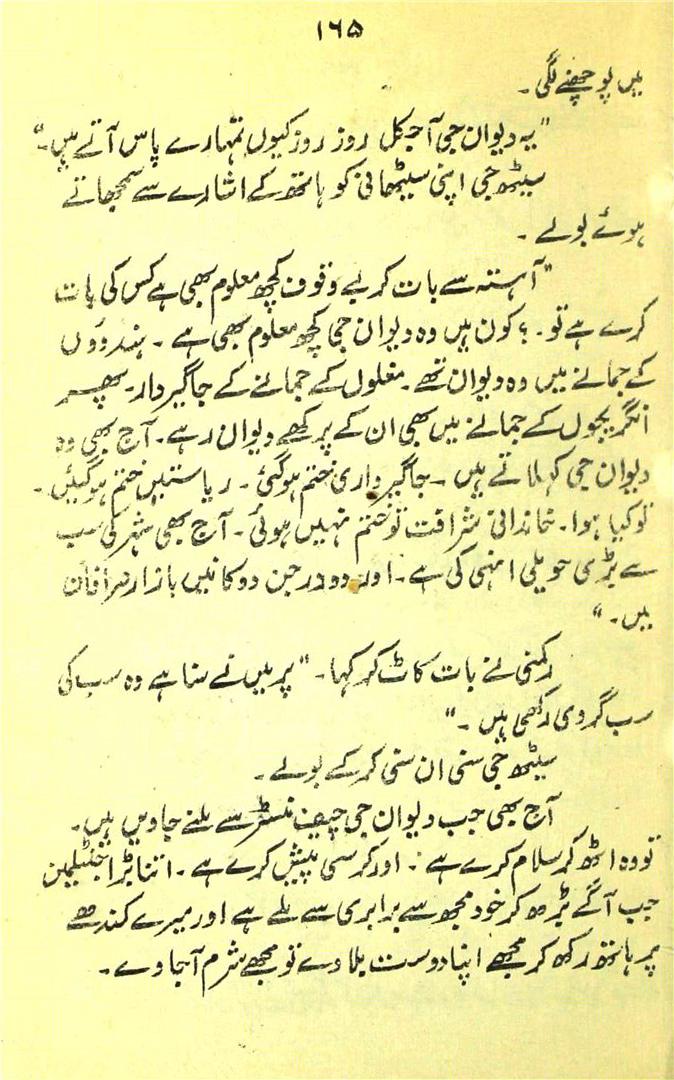 ۱۶۵
میں پوچھنے لگی۔
"یہ دیوان جی آجکل روز روز کیوں تمہارے پاس آتے ہیں۔"
سیٹھ جی اپنی سیٹھانی کو ہاتھ کے اشارے سے سمجھاتے
ہوئے بولے۔
"آہستہ سے بات کر بے وقوف کچھ معلوم بھی ہے کس کی بات
کرے ہے تو۔ ؟ کون ہیں وہ دیوان جی کچھ معلوم بھی ہے۔ ہندوؤں
کے جمانے میں وہ دیوان تھے۔ مغلوں کے جمانے کے جاگیردار۔ پھر
انگریجوں کے جمانے میں بھی ان کے پرکھے دیوان رہے۔ آج بھی وہ
دیوان جی کہلاتے ہیں۔ جاگیرداری ختم ہوگئی۔ ریاستیں ختم ہوگئیں۔
تو کیا ہوا۔ خاندانی شرافت تو ختم نہیں ہوئی۔ آج بھی شہر کی سب
سے بڑی حویلی انہی کی ہے۔ اور دو درجن دوکانیں بازار صرافان
میں۔"
رکمنی نے بات کاٹ کر کہا۔ "پر میں نے سنا ہے وہ سب کی
سب گروی رکھی ہیں۔"
سیٹھ جی سنی ان سنی کر کے بولے۔
آج بھی جب دیوان جی چیف منسٹر سے ملنے جاویں ہیں۔
تو وہ اٹھ کر سلام کرے ہے۔ اور کرسی پیش کرے ہے۔ اتنا بڑا جنٹیلمین
جب آگے بڑھ کر خود مجھ سے برابری سے ملے ہے اور میرے کندھے
پر ہاتھ رکھ کر مجھے اپنا دوست بلا دے تو مجھے شرم آجاوے۔